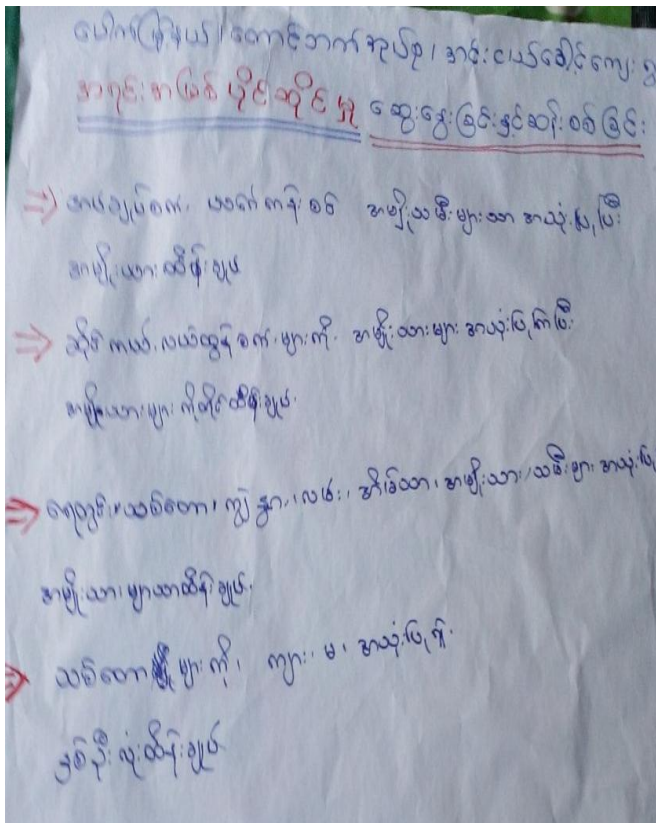 ပေါက်မြို့နယ်၊ တောင်ဘက်အုပ်စု၊ အင်းငယ်ခေါင်ကျေးရွ
အရင်းအမြစ်ပိုင်ဆိုင်မှု ဆွေးနွေးခြင်းနှင့်ဆန်းစစ်ခြင်း
⇒ အပ်ချုပ်စက်၊ ယက်ကန်းစင် အမျိုးသမီးများသာ အသုံးပြုပြီး
အမျိုးသားထိန်းချုပ်
⇒ ဆိုင်ကယ်၊ လယ်ထွန်စက်များကို အမျိုးသားများ အသုံးပြုကြပြီး
အမျိုးသားများကိုယ်တိုင်ထိန်းချုပ်
⇒ ရေတွင်း၊ သစ်တော၊ ကျွဲနွား၊ လမ်း၊ အိမ်သာ၊ အမျိုးသား/သမီးများ အသုံးပြု
အမျိုးသားများသာထိန်းချုပ်
⇒ သစ်တောများကို၊ ကျား၊ မ၊ အသုံးပြု၍
နှစ်ဦးလုံးထိန်းချုပ်